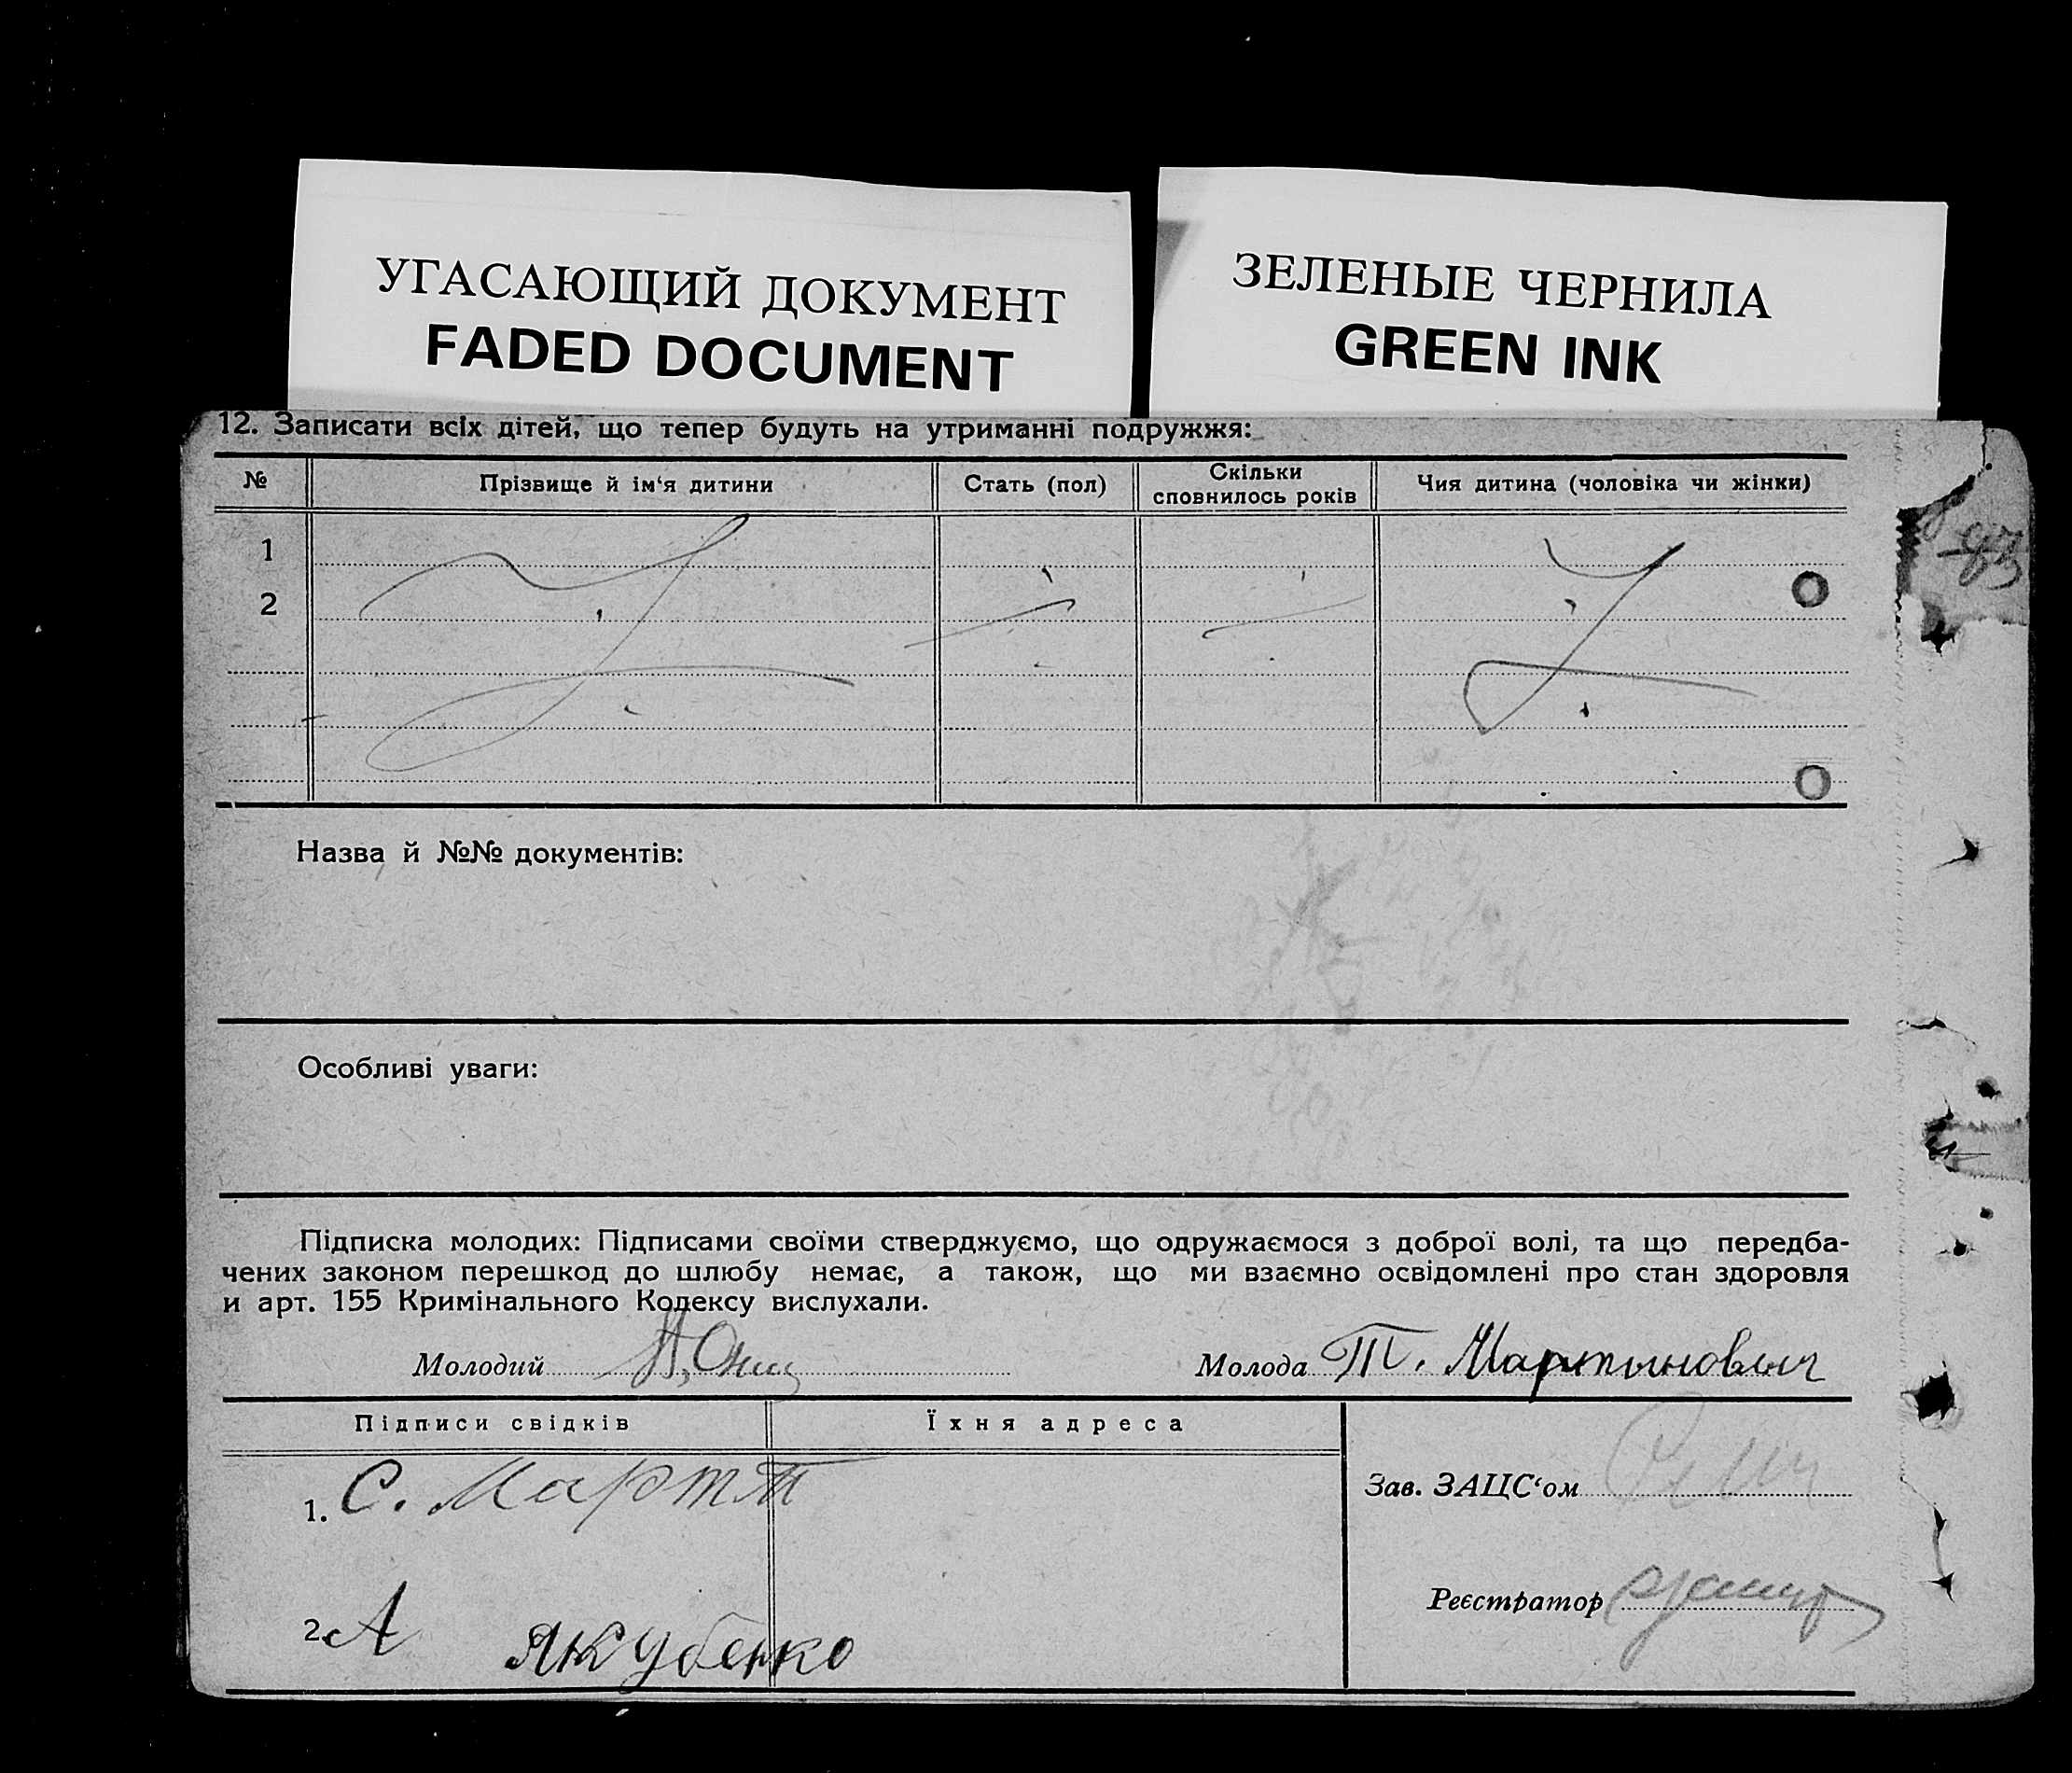 УГАСАЮЩИЙ ДОКУМЕНТ
FADED DOCUMENT
ЗЕЛЕНЫЕ ЧЕРНИЛА
GREEN INK
12. Записати всіх дітей, що тепер будуть на утриманні подружжя:
№ Прізвище й ім‘я дитини Стать (пол) Скільки сповнилось років Чия дитина (чоловіка чи жінки)
1
2
Назва й №№ документів:
Особливі уваги:
Підписка молодих: Підписами своїми стверджуємо, що одружаємося з доброї волі, та що передба-
чених законом перешкод до шлюбу немає, а також, що ми взаємно освідомлені про стан здоровля
и арт. 155 Кримінального Кодексу вислухали.
Молодий Молода Т. Мартынович
Підписи свідків Їхня адреса
1. С. Март
Зав. ЗАЦС‘ом
2. А Якубенко
Реєстратор